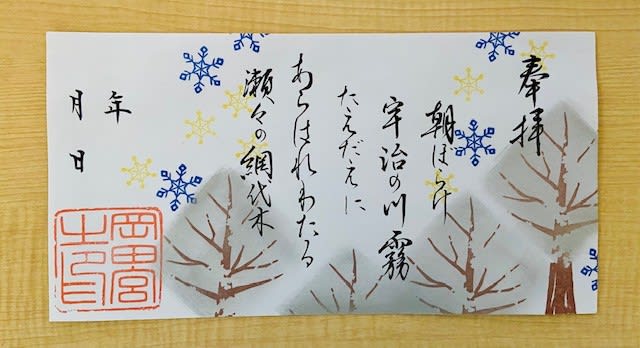 奉拝
朝ぼらけ
宇治の川霧
たえだえに
あらはれわたる
瀬々の網代木
年
月日
岡田宮
之印